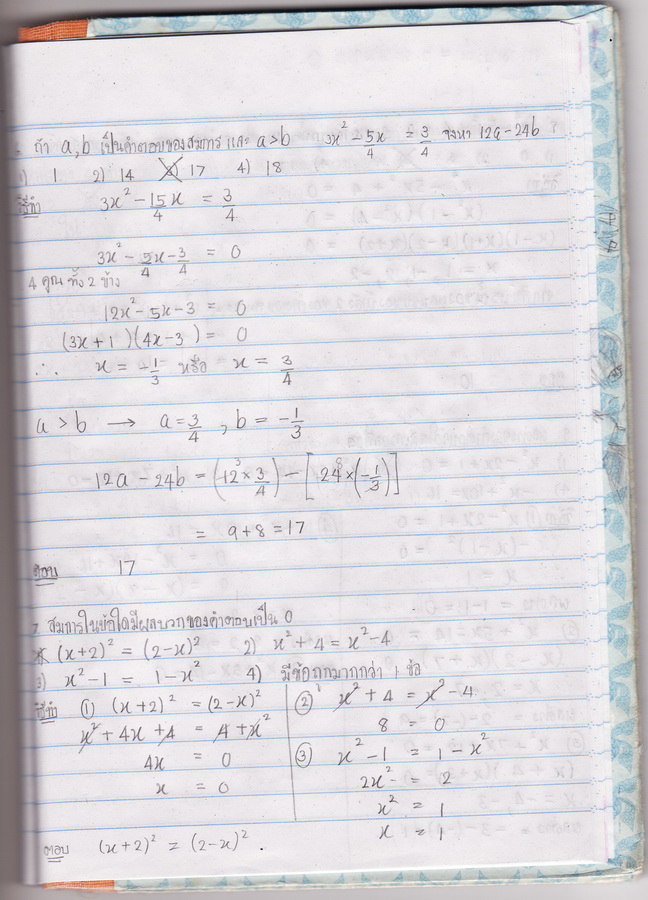 ถ้า a,b เป็นคำตอบของสมการ และ a>b 3x² - 5x/4 = 3/4 จงหา 12a-24b
1) 1 2) 14 3) 17 4) 18
วิธีทำ 3x² - 15/4 x = 3/4
3x² - 5x/4 - 3/4 = 0
4 คูณ ทั้ง 2 ข้าง
12x² - 5x - 3 = 0
(3x+1)(4x-3) = 0
∴ x = -1/3 หรือ x = 3/4
a > b → a = 3/4 , b = -1/3
12a - 24b = (12³ × 3/4) - [24⁸ × (-1/3)]
= 9+8 = 17
ตอบ 17
7. สมการในข้อใดมีผลบวกของคำตอบเป็น 0
(x+2)² = (2-x)² 2) x²+4 = x²-4
3) x²-1 = 1-x² 4) มีข้อถูกมากกว่า 1 ข้อ
วิธีทำ ① (x+2)² = (2-x)²
x² + 4x + 4 = 4 + x²
4x = 0
x = 0
② x² + 4 = x² - 4
8 = 0
③ x² - 1 = 1 - x²
2x² = 2
x² = 1
x = 1
ตอบ (x+2)² = (2-x)² .